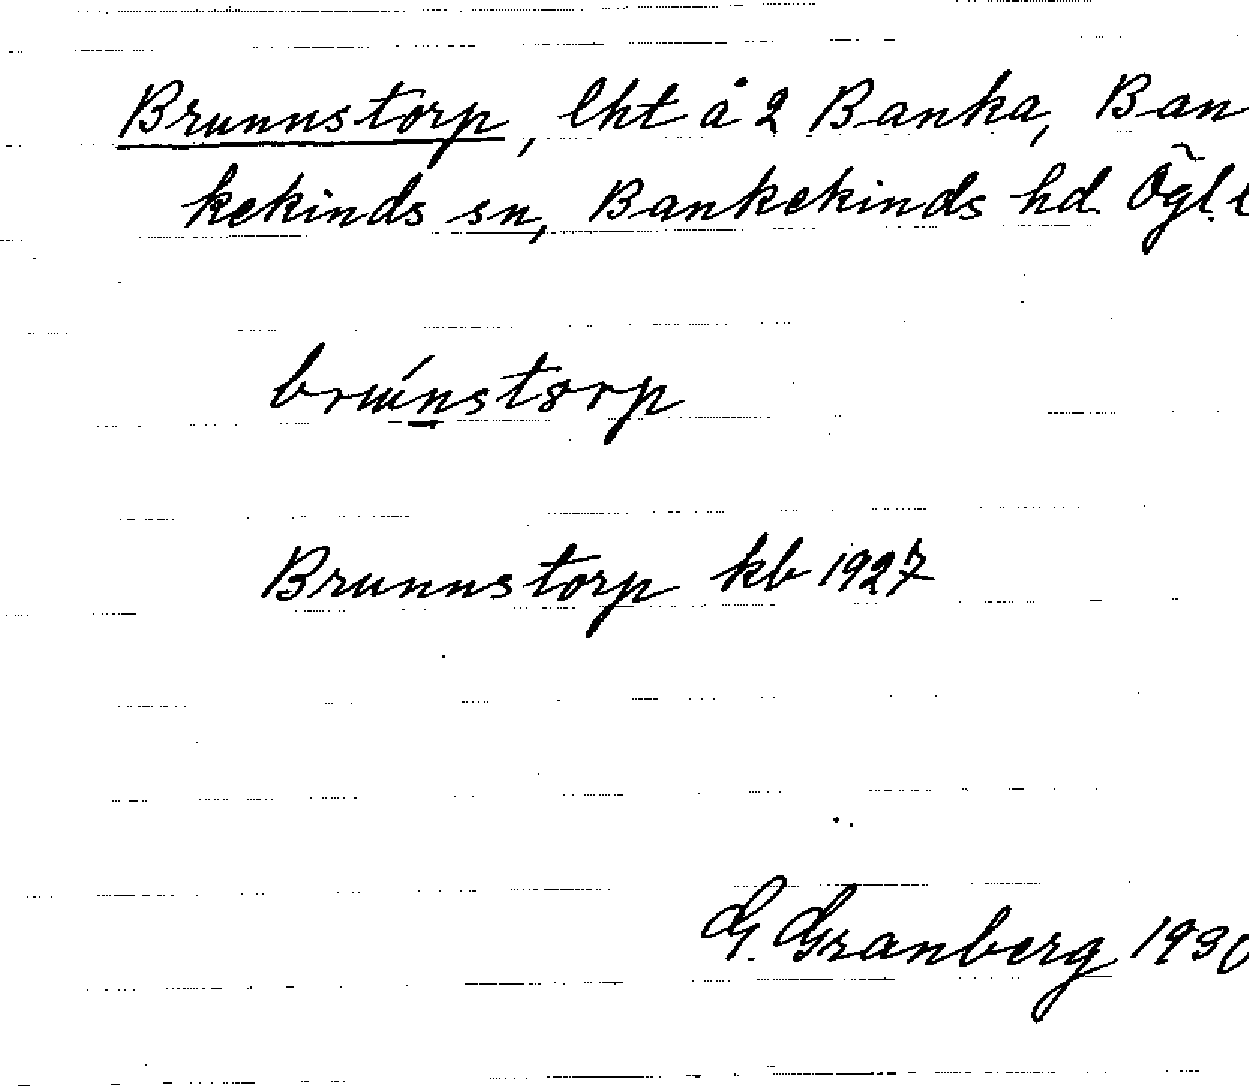 Brunnstorp, lht å 2 Banka, Ban
kekinds sn, Bankekinds hd Ögl.
brúnstorp
Brunnstorp kb 1927
G. Granberg 1930